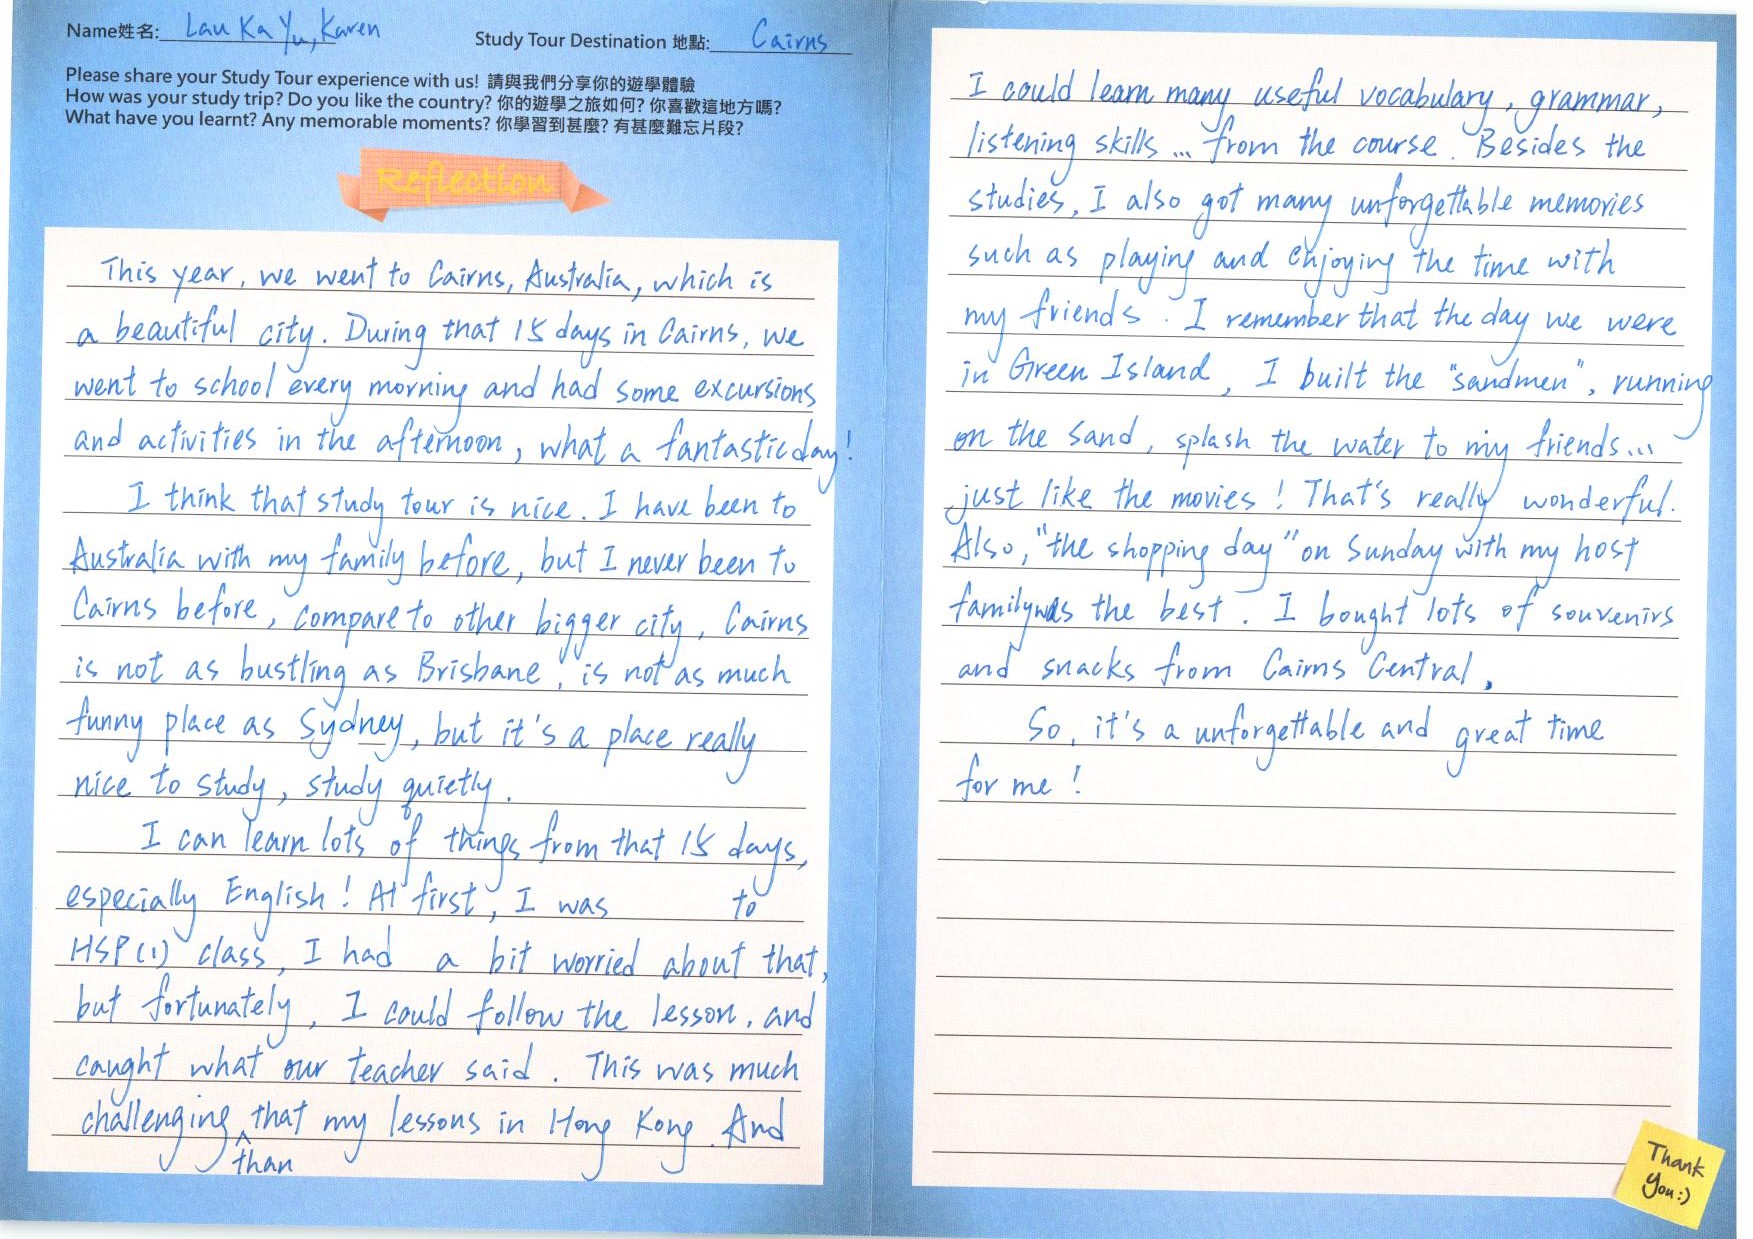 Name姓名: Lau Ka Yu, Karen
Study Tour Destination 地點: Cairns
Please share your Study Tour experience with us! 請與我們分享你的遊學體驗
How was your study trip? Do you like the country? 你的遊學之旅如何? 你喜歡這地方嗎?
What have you learnt? Any memorable moments? 你學習到甚麼? 有甚麼難忘片段?
Reflection
This year, we went to Cairns, Australia, which is
a beautiful city. During that 15 days in Cairns, we
went to school every morning and had some excursions
and activities in the afternoon, what a fantastic day!
I think that study tour is nice. I have been to
Australia with my family before, but I never been to
Cairns before, compare to other bigger city, Cairns
is not as bustling as Brisbane, is not as much
funny place as Sydney, but it's a place really
nice to study, study quietly.
I can learn lots of things from that 15 days,
especially English! At first, I was to
HSP(1) class, I had a bit worried about that,
but fortunately, I could follow the lesson, and
caught what our teacher said. This was much
challenging that my lessons in Hong Kong. And
than
I could learn many useful vocabulary, grammar,
listening skills... from the course. Besides the
studies, I also got many unforgettable memories
such as playing and enjoying the time with
my friends. I remember that the day we were
in Green Island, I built the "sandmen", running
on the sand, splash the water to my friends...
just like the movies! That's really wonderful.
Also, "the shopping day" on Sunday with my host
family was the best. I bought lots of souvenirs
and snacks from Cairns Central.
So, it's a unforgettable and great time
for me!
Thank
You:)